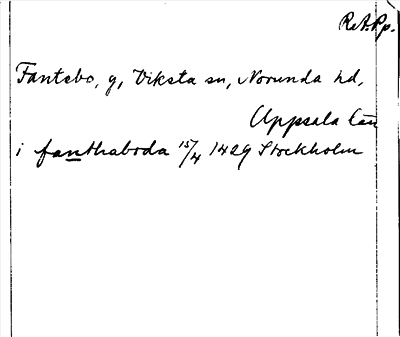 RA.Pp.
Fantebo, g, Viksta sn, Norunda hd,
Uppsala län
i fanthaboda 15/4 1429 Stockholm